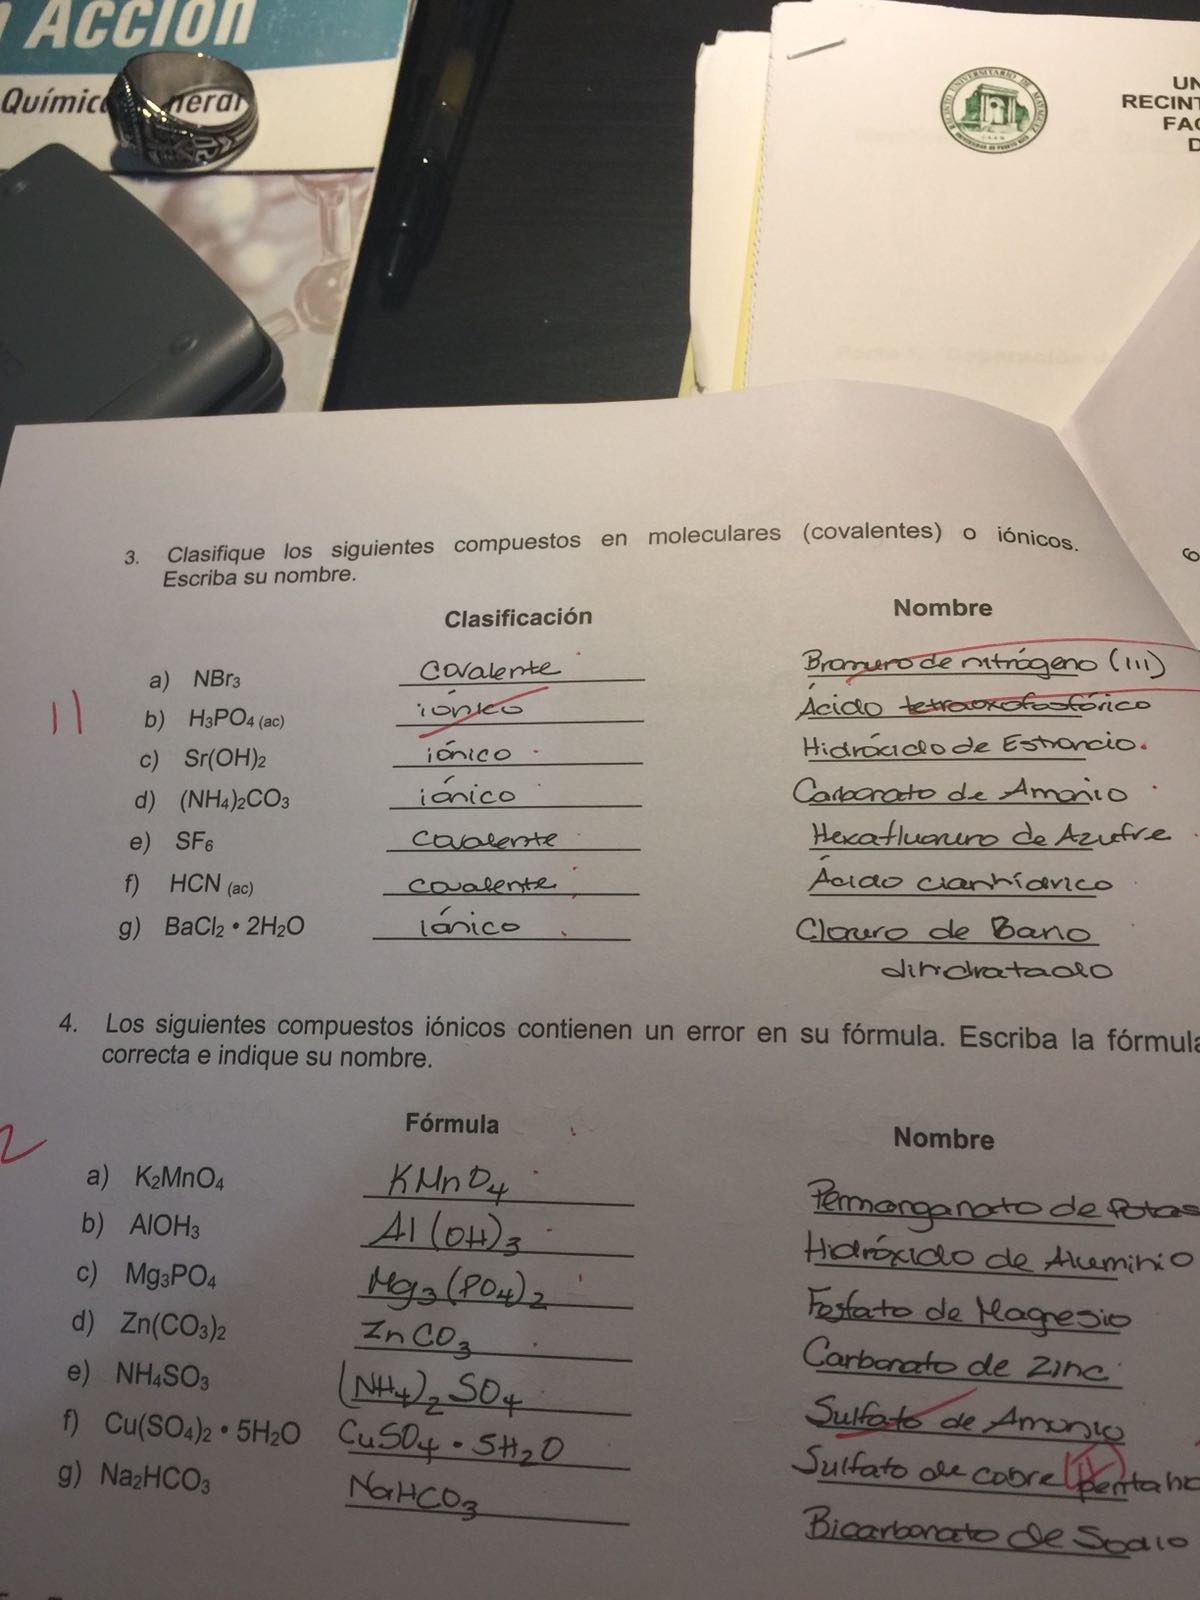 Acción
Química neral
RECINTO UNIVERSITARIO DE MAYAGÜEZ
UN
RECINT
FAC
D
3. Clasifique los siguientes compuestos en moleculares (covalentes) o iónicos.
Escriba su nombre.
Clasificación Nombre
11
a) NBr3 Covalente Bromuro de nitrógeno (III)
b) H3PO4 (ac) iónico Ácido tetraoxofosfórico
c) Sr(OH)2 iónico Hidróxido de Estroncio
d) (NH4)2CO3 iónico Carbonato de Amonio
e) SF6 Covalente Hexafluoruro de Azufre
f) HCN (ac) covalente Ácido cianhídrico
g) BaCl2 • 2H2O Iónico Cloruro de Bario
dihidratado
4. Los siguientes compuestos iónicos contienen un error en su fórmula. Escriba la fórmula
correcta e indique su nombre.
Fórmula Nombre
2
a) K2MnO4 KMnO4 Permanganato de Potas
b) AlOH3 Al(OH)3 Hidróxido de Aluminio
c) Mg3PO4 Mg3(PO4)2 Fosfato de Magnesio
d) Zn(CO3)2 ZnCO3 Carbonato de Zinc
e) NH4SO3 (NH4)2SO4 Sulfato de Amonio
f) Cu(SO4)2 • 5H2O CuSO4 • 5H2O Sulfato de cobre pentahid
g) Na2HCO3 NaHCO3 Bicarbonato de Sodio